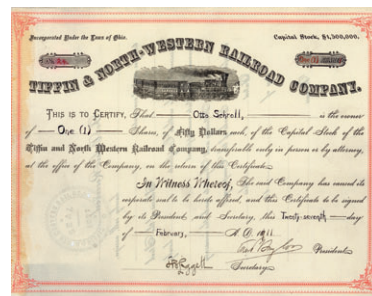 Incorporated Under the Laws of Ohio.
Capital Stock, $1,500,000.
TIFFIN & NORTH-WESTERN RAILROAD COMPANY.
THIS IS TO CERTIFY, That Otto Schroll, is the owner
of One (1) Shares, of Fifty Dollars each, of the Capital Stock of the
Tiffin and North Western Railroad Company, transferable only in person or by attorney,
at the office of the Company, on the return of this Certificate
In Witness Whereof, The said Company has caused its
corporate seal to be hereto affixed, and this Certificate to be signed
by its President and Secretary, this Twenty-seventh day
of February, A.D. 1911
President
Secretary